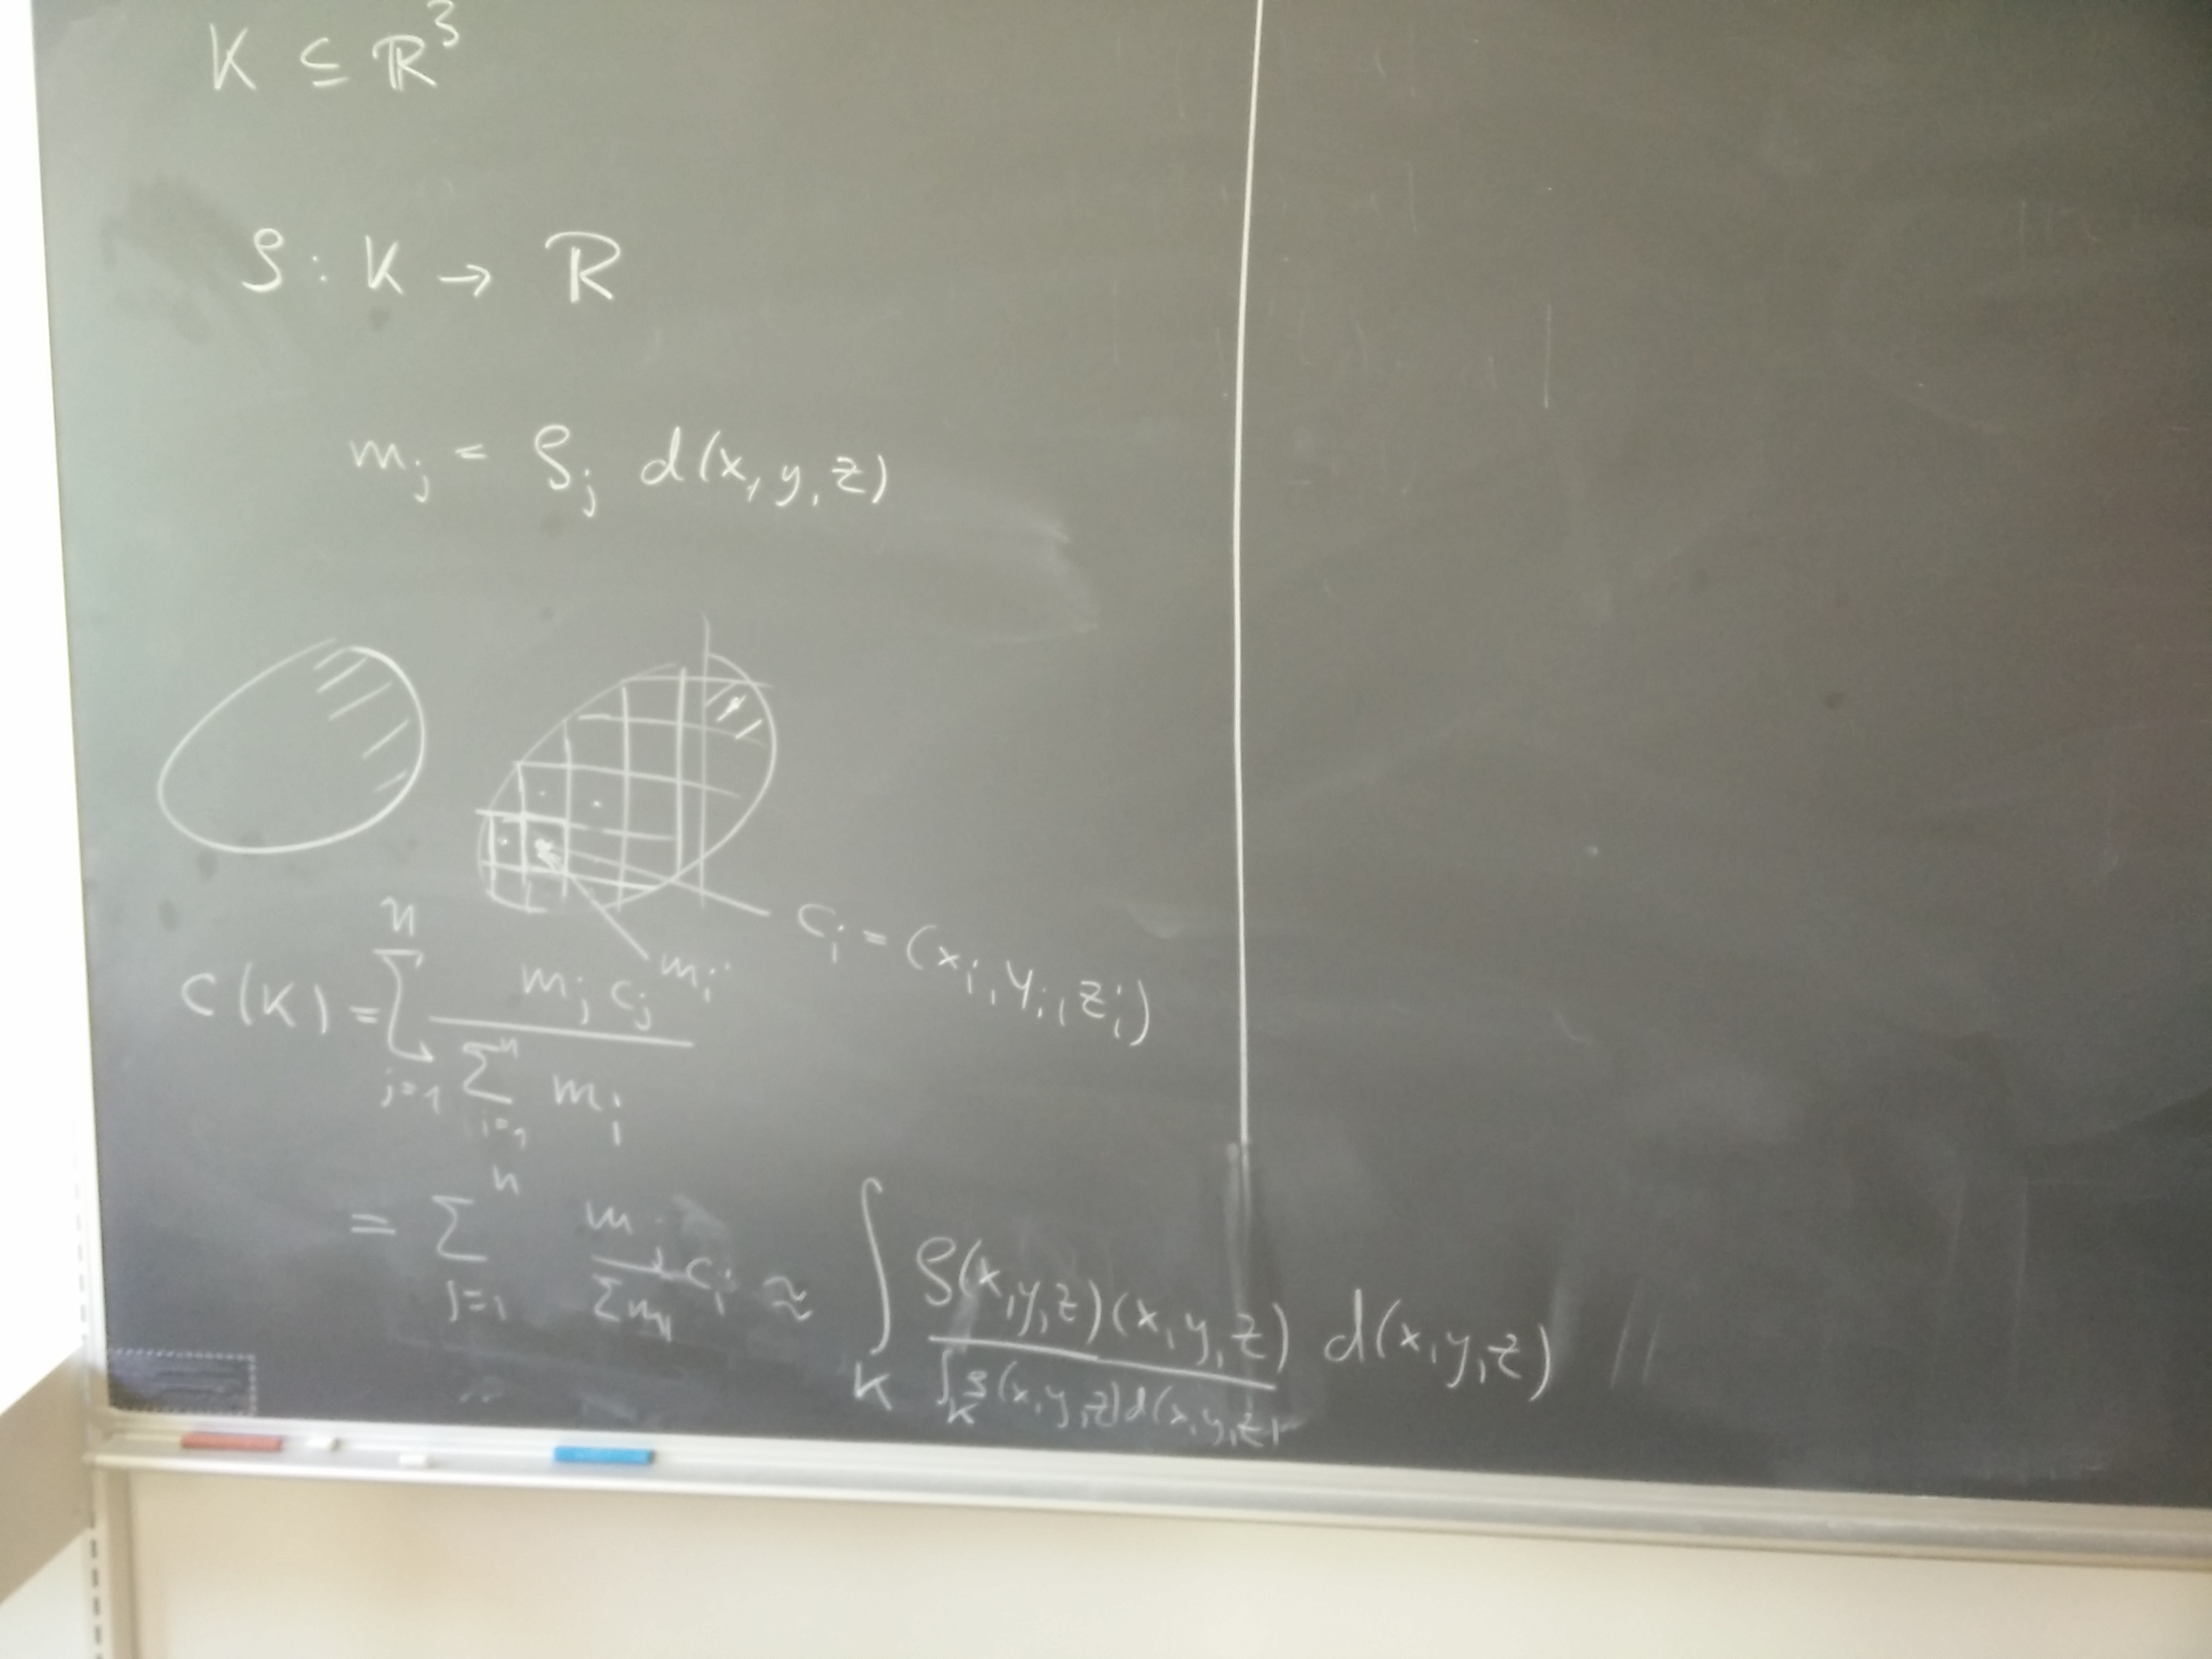 K ⊆ ℝ³
ρ : K → ℝ
m_j = ρ_j d(x, y, z)
c_i = (x_i, y_i, z_i)
m_i
C(K) = ∑_{j=1}^{n} m_j c_j / ∑_{i=1}^{n} m_i
= ∑_{j=1}^{n} m_j / ∑m_i c_j ≈ ∫_K ρ(x,y,z)(x,y,z) / ∫_K ρ(x,y,z)d(x,y,z) d(x,y,z) //